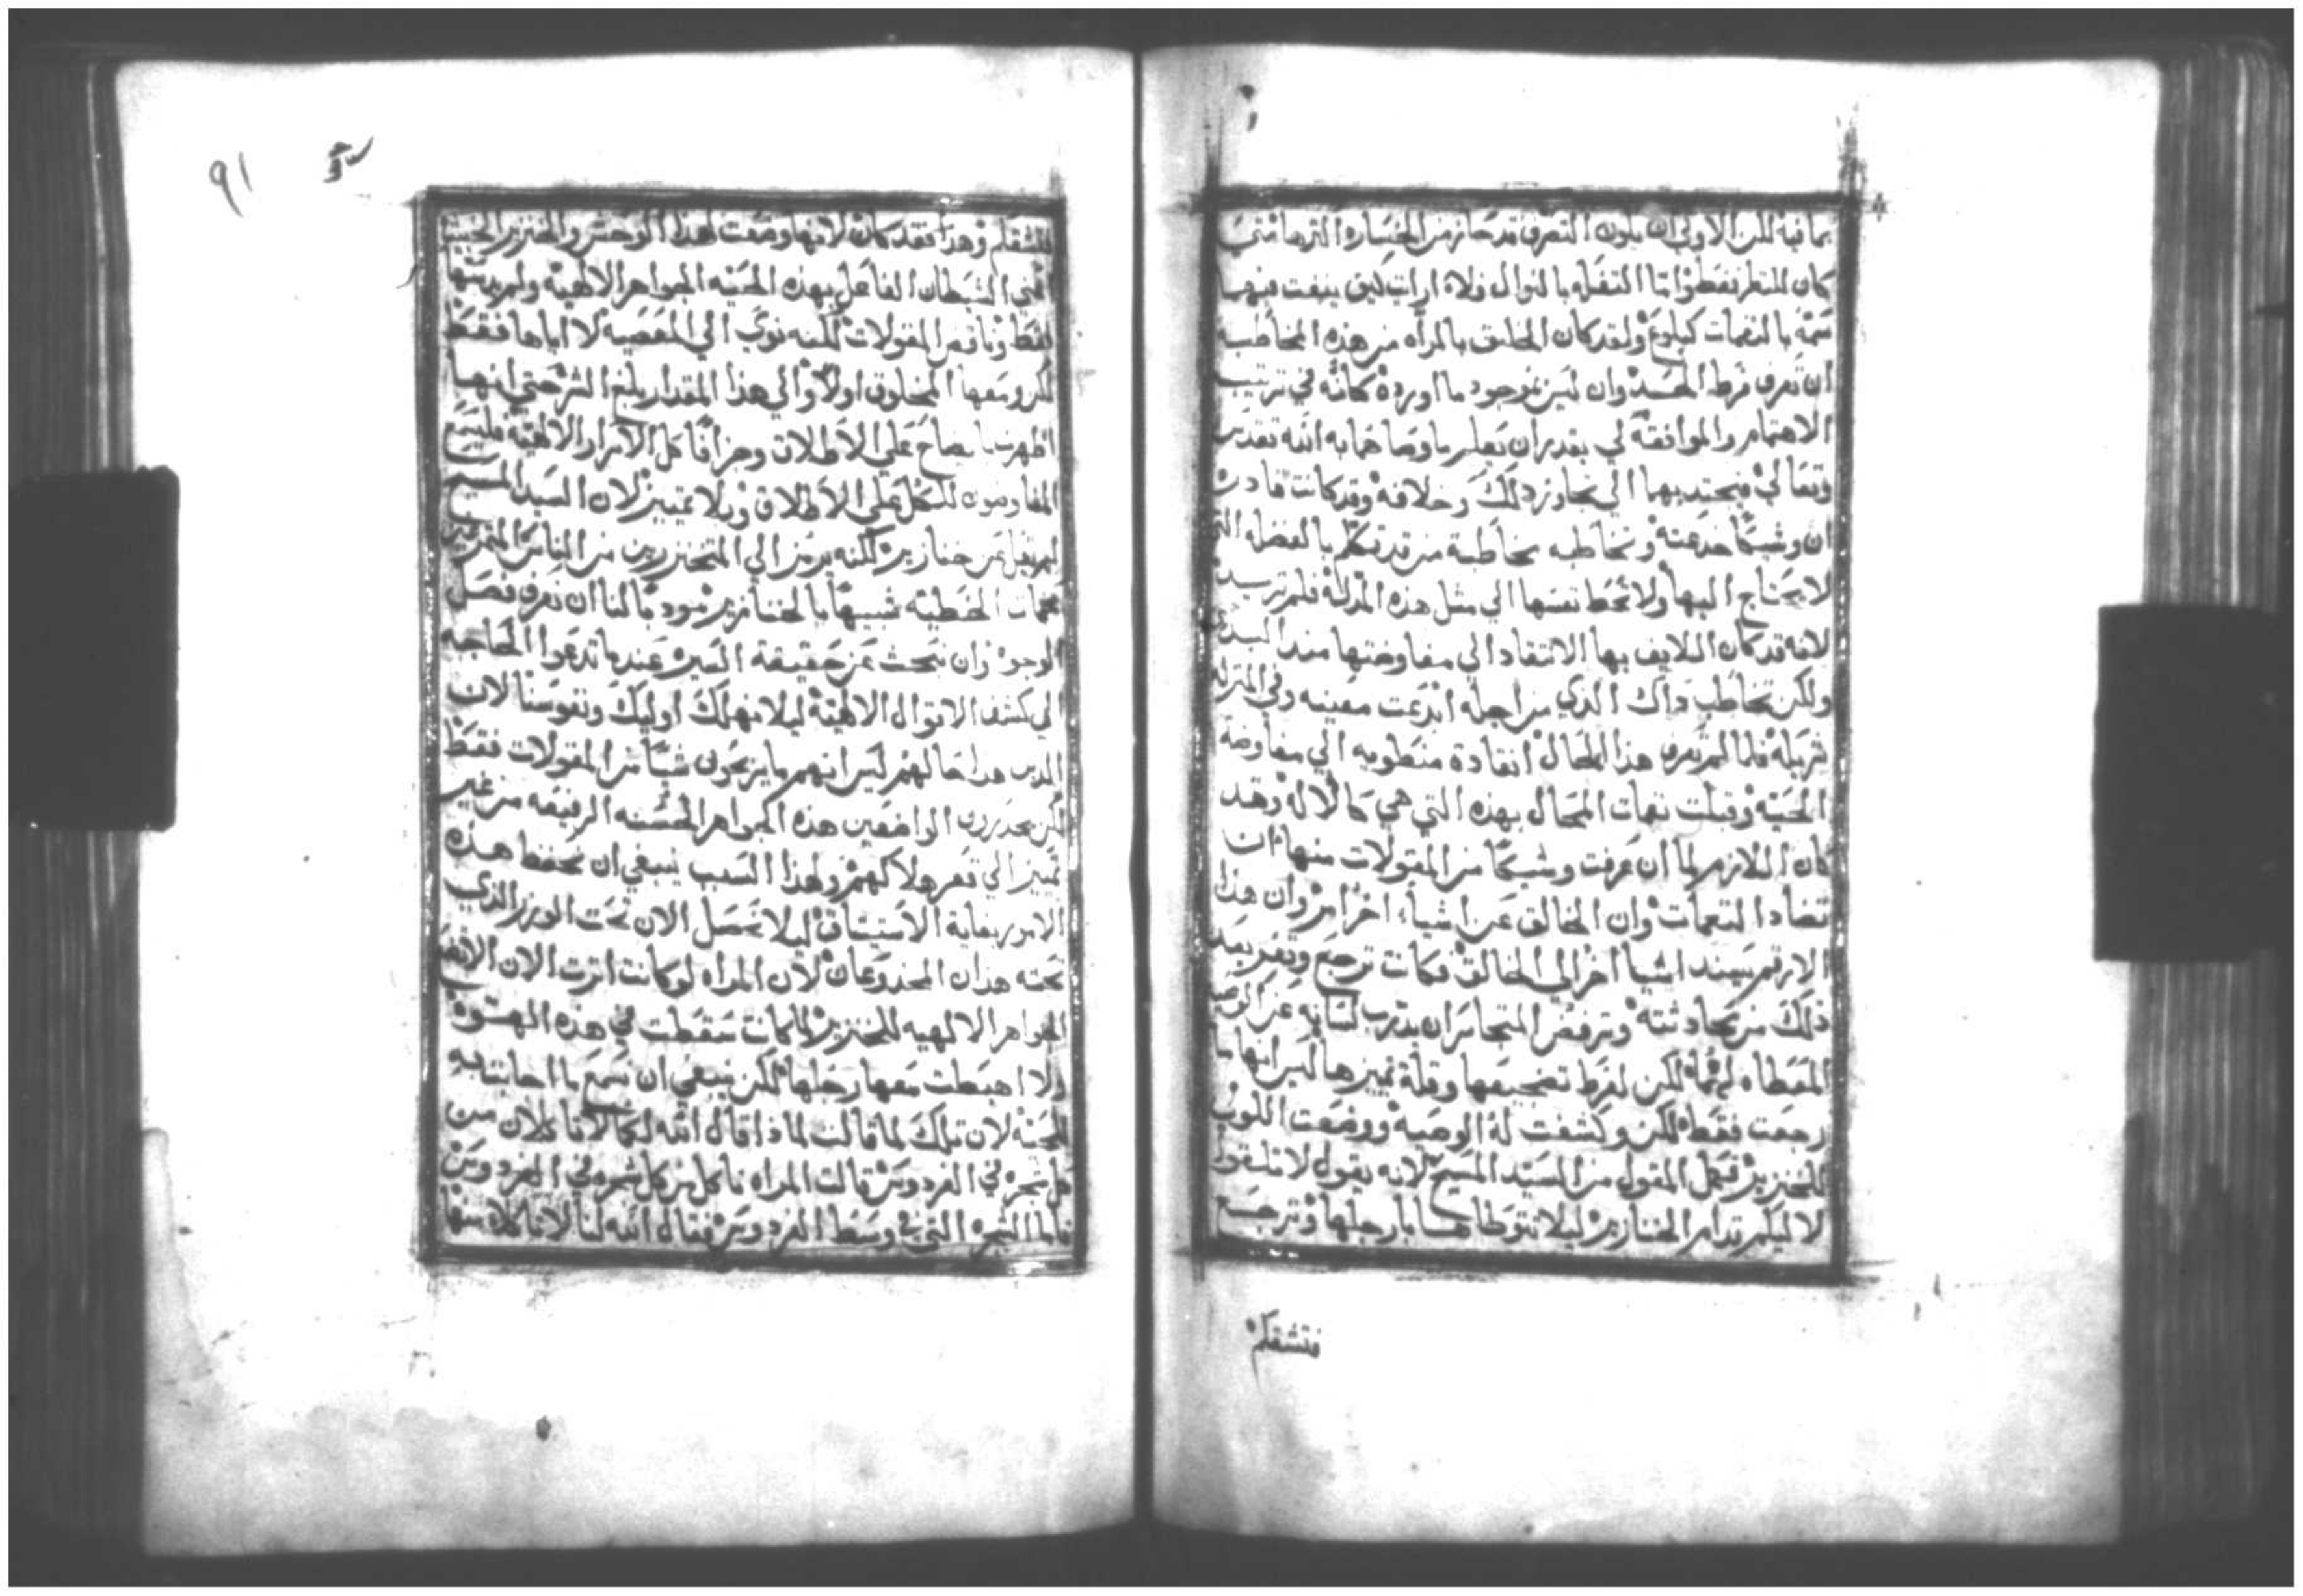 بما فيه لكن الاولي ان يكون التصرف قد حاز من الخساره اكثرها متي
كان للنظر فقط واما التفقه بالنوال فلا
سمه بالنغمات كبلوغ ولقد كان الخليق بالمراه من هذه المخاطبه
ان تعرف فرط الحسد وان ليس بموجود ما اورده كانه في ترتيب
الاهتمام والموافقه لي بقدر ان يعلم ما وصاهما به الله تقدس
وتعالي فيجتديهما الي تجاوز ذلك وخلافه وقد كانت قادره
ان وشيكا خدعته وتخاطبه مخاطبة من قد تكلم بالفضله التي
لا يحتاج اليها ولا تحط نفسها الي مثل هذه المذله فلم تريد
لانه قد كان اللايق بها الانتقاد الي مفاوضتها منذ البدي
ولكن تخاطب ذاك الذي من اجله ابدعت معينه وفي المنزله
شريكة فلما لم تعرف هذا المحال انقادة منطويه الي مفاوضة
الحيه وقبلت نغمات المحال بهذه التي هي كالاله وقد
كان اللازم لما ان عرفت وشيكا من المقولات منها ان
تضاد النغمات وان الخالق عن اشياء اخر امر وان هذا
الارقم يسند اشيا اخر الي الخالق فكانت ترجع وتفر بعد
ذلك من محادثته وترفض المتجاسر ان يدرب لسانه عن الوصيه
المعطاه لهما لكن لفرط تضجيعها وقلة تمييزها ليس انها ما
رجعت فقط لكن وكشفت له الوصيه ووضعت اللولو
للخنزير فكمل المقول من السيد المسيح لانه يقول لا تلقوا
لاليكم قدام الخنازير ليلا تتوطاها بارجلها وترجع
فتشقكم
٩١
فتشقكم وهذا فقد كان لانها وضعت لهذا الوحش والخنزير الخبيث
اعني الشيطان الفاعل بهذه الحيه الجواهر الالهيه ولم يدسها
فقط وناقض المقولات لكنه نوي الي المعصيه لا اياها فقط
لكن ومعها المخلوق اولا والي هذا المقدار بلغ الشر حتي انها
اظهرت بايضاح علي الاطلاق وجزافا كل الاسرار الالهيه فليسمع
المفاوضون للكل علي الاطلاق وبلا تمييز لان السيد المسيح
لم يقل عن خنازير لكنه يرمز الي المتخنزرين من الناس المتمرغين
بحمات الخطيه تشبيها بالخنازير مودبا لنا ان نعرف فصل
الوجوه وان نبحث عن حقيقة السيره عندما تدعوا الحاجه
الي كشف الاقوال الالهيه ليلا نهلك اوليك ونفوسنا لان
الذين هذا حالهم ليس انهم ما يربحون شيا من المقولات فقط
لكن يحدرون الواضعين هذه الجواهر الحسنه الرفيعه من غير
تمييز الي قعر هلاكهم ولهذا السبب ينبغي ان نحفظ هذه
الامور بغاية الاستيثاق ليلا نحصل الان تحت الوزر الذي
تحته هذان المخدوعان لان المراه لو كانت اثرت الان الا تضع
الجواهر الالهيه للخنزير لما كانت سقطت في هذه الهوه
ولا اهبطت معها رجلها لكن ينبغي ان نسمع ما اجابته به
للحيه لان تلك لما قالت لماذا قال الله لكما لا تاكلان من
كل شجره في الفردوس قالت المراه ناكل من كل شجره في الفردوس
فاما الشجره التي في وسط الفردوس فقال الله لنا لا تاكلا منها